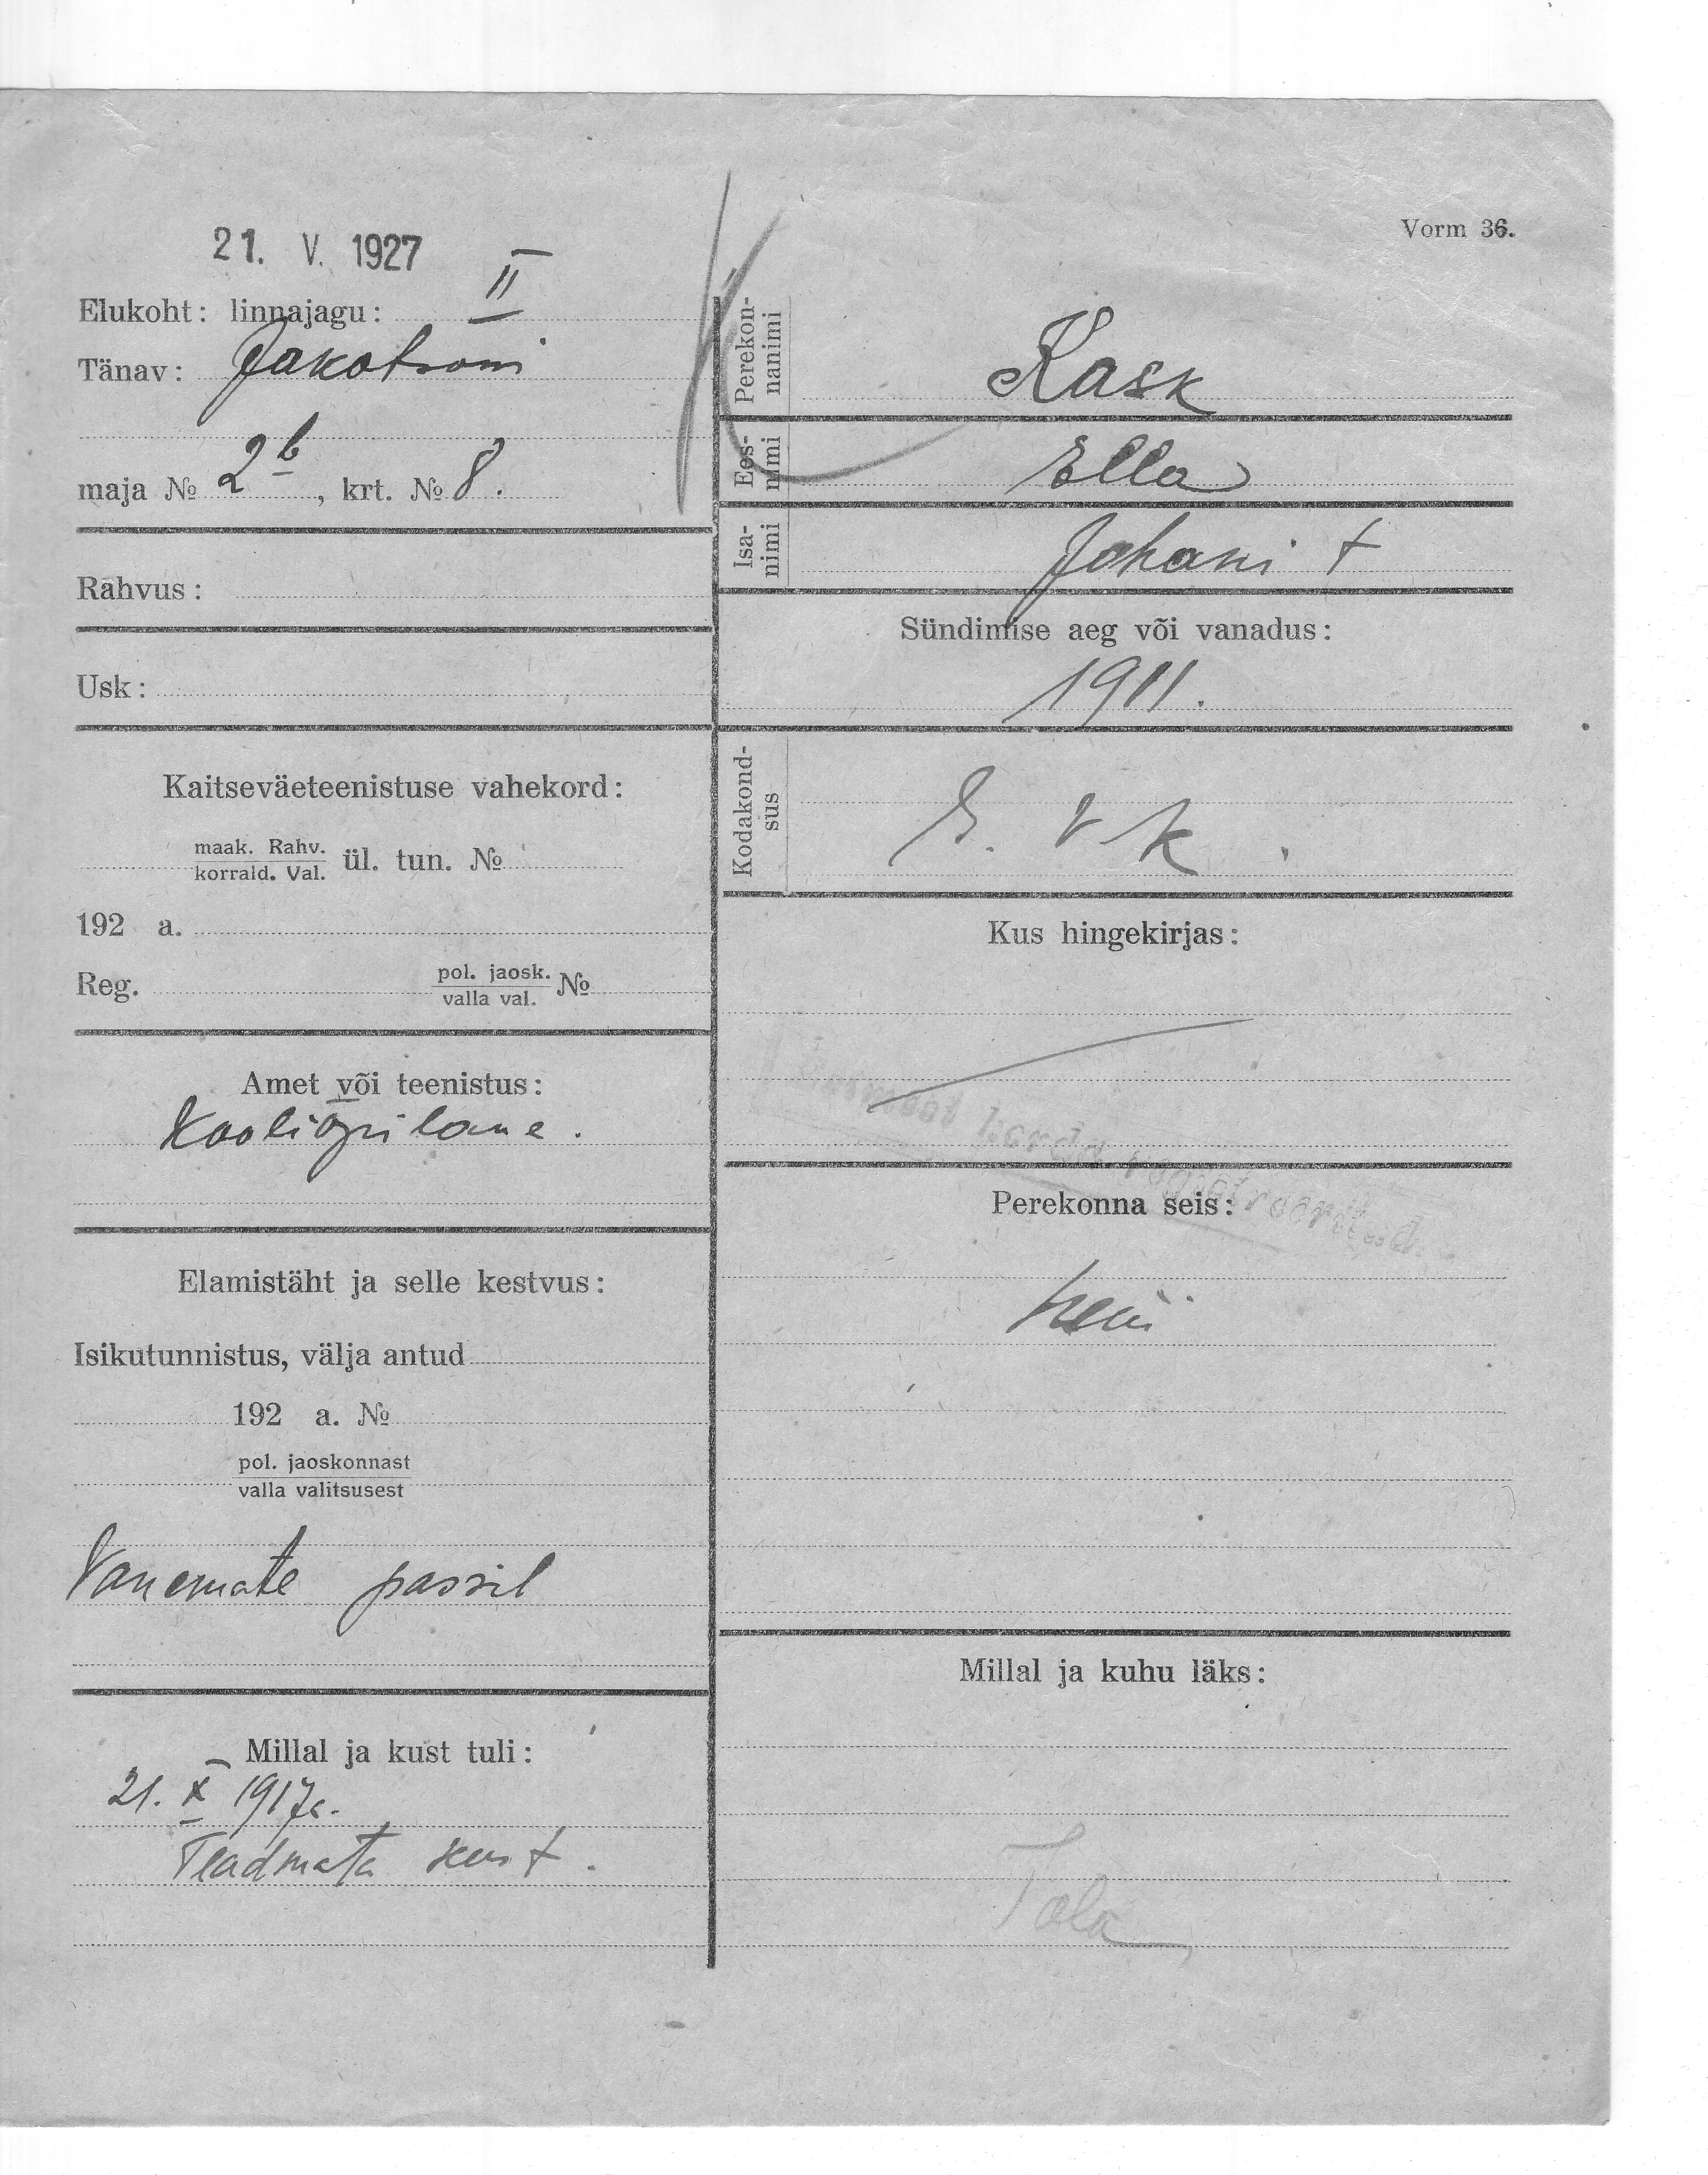 Vorm 36.
21. V. 1927
Elukoht: linnajagu: II
Tänav: Jakobsoni
maja № 2b, krt. № 8.
Rahvus:
Usk:
Kaitseväeteenistuse vahekord:
maak. Rahv.
korrald. Val. ül. tun. №
192 a.
Reg. pol. jaosk.
valla val. №
Amet või teenistus:
Kooliõpilane.
Elamistäht ja selle kestvus:
Isikutunnistus, välja antud
192 a. №
pol. jaoskonnast
valla valitsusest
Vanemate passil
Millal ja kust tuli:
21. X 1917a.
Teadmata kust.
Perekon-
nanimi
Kask
Ees-
nimi
Ella
Isa-
nimi
Johani †
Sündimise aeg või vanadus:
1911.
Kodakond-
sus
E. V k.
Kus hingekirjas:
Esimest korda registreeritud.
Perekonna seis:
neiu
Millal ja kuhu läks: